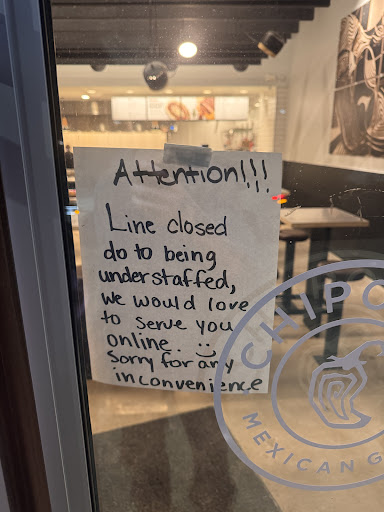 Attention!!!
Line closed
do to being
understaffed,
we would love
to serve you
online. :)
Sorry for any
inconvenience
CHIPO
MEXICAN G